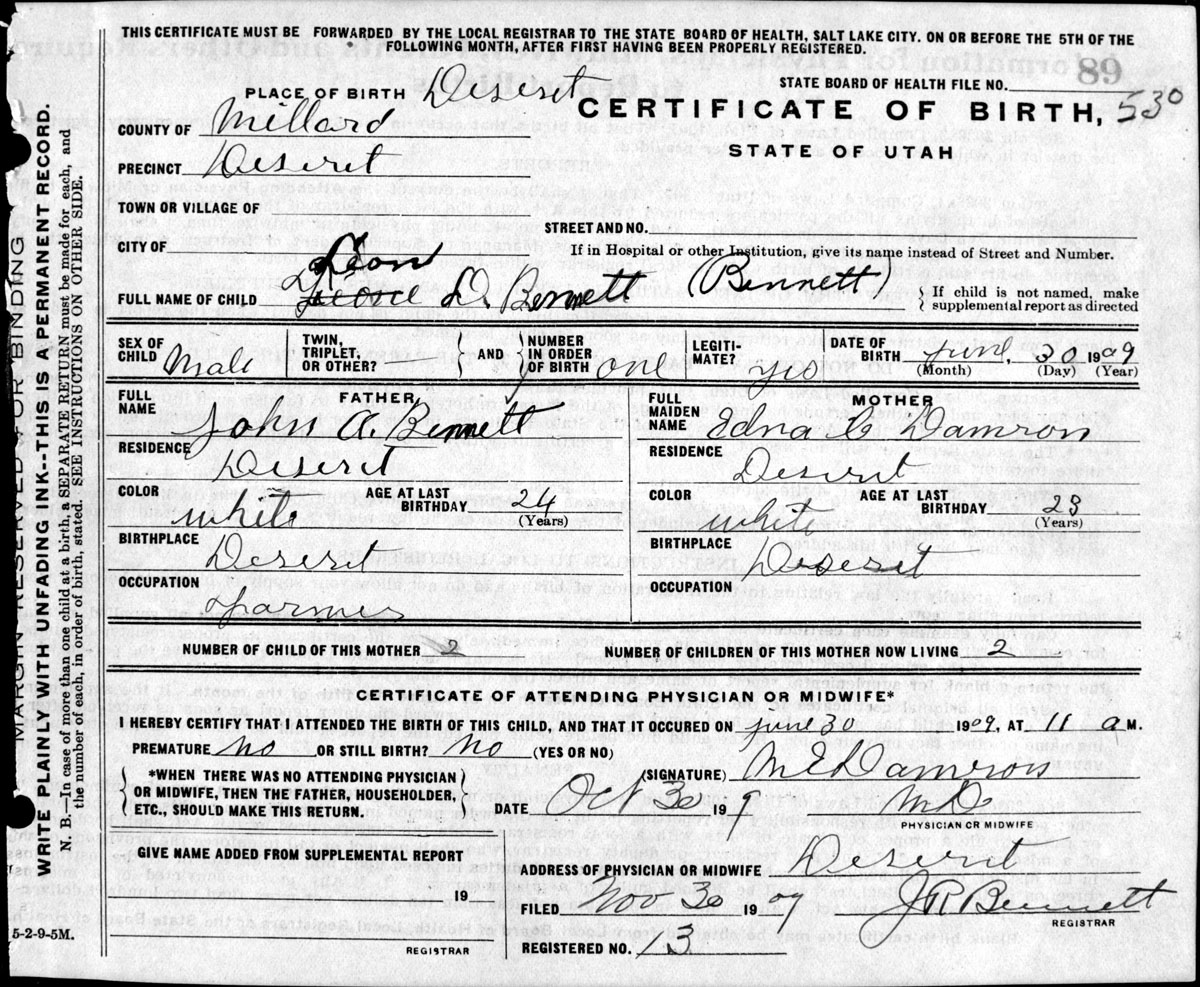 THIS CERTIFICATE MUST BE FORWARDED BY THE LOCAL REGISTRAR TO THE STATE BOARD OF HEALTH, SALT LAKE CITY. ON OR BEFORE THE 5TH OF THE
FOLLOWING MONTH, AFTER FIRST HAVING BEEN PROPERLY REGISTERED.
68
STATE BOARD OF HEALTH FILE NO.
PLACE OF BIRTH Deseret
CERTIFICATE OF BIRTH, 530
COUNTY OF Millard
STATE OF UTAH
PRECINCT Deseret
TOWN OR VILLAGE OF
STREET AND NO.
CITY OF
If in Hospital or other Institution, give its name instead of Street and Number.
Leon
FULL NAME OF CHILD D. Bennett (Bennett)
If child is not named, make
supplemental report as directed
SEX OF CHILD Male
TWIN, TRIPLET, OR OTHER?
AND
NUMBER IN ORDER OF BIRTH one
LEGITI-MATE? yes
DATE OF BIRTH June, 30 1909
(Month) (Day) (Year)
FATHER
FULL NAME John A. Bennett
RESIDENCE Deseret
COLOR white
AGE AT LAST BIRTHDAY 24
(Years)
BIRTHPLACE Deseret
OCCUPATION farmer
MOTHER
FULL MAIDEN NAME Edna Damron
RESIDENCE Deseret
COLOR white
AGE AT LAST BIRTHDAY 23
(Years)
BIRTHPLACE Deseret
OCCUPATION
NUMBER OF CHILD OF THIS MOTHER 2
NUMBER OF CHILDREN OF THIS MOTHER NOW LIVING 2
CERTIFICATE OF ATTENDING PHYSICIAN OR MIDWIFE*
I HEREBY CERTIFY THAT I ATTENDED THE BIRTH OF THIS CHILD, AND THAT IT OCCURED ON June 30 1909, AT 11 a M.
PREMATURE No OR STILL BIRTH? No (YES OR NO)
*WHEN THERE WAS NO ATTENDING PHYSICIAN
OR MIDWIFE, THEN THE FATHER, HOUSEHOLDER,
ETC., SHOULD MAKE THIS RETURN.
(SIGNATURE) M E Damron
DATE Oct 30 19 9 M D
PHYSICIAN OR MIDWIFE
GIVE NAME ADDED FROM SUPPLEMENTAL REPORT
19
REGISTRAR
ADDRESS OF PHYSICIAN OR MIDWIFE Deseret
FILED Nov 30 1909 J R Bennett
REGISTRAR
REGISTERED NO. 13
MARGIN RESERVED FOR BINDING
WRITE PLAINLY WITH UNFADING INK--THIS IS A PERMANENT RECORD.
N. B.—In case of more than one child at a birth, a SEPARATE RETURN must be made for each, and
the number of each, in order of birth, stated. SEE INSTRUCTIONS ON OTHER SIDE.
5-2-9-5M.